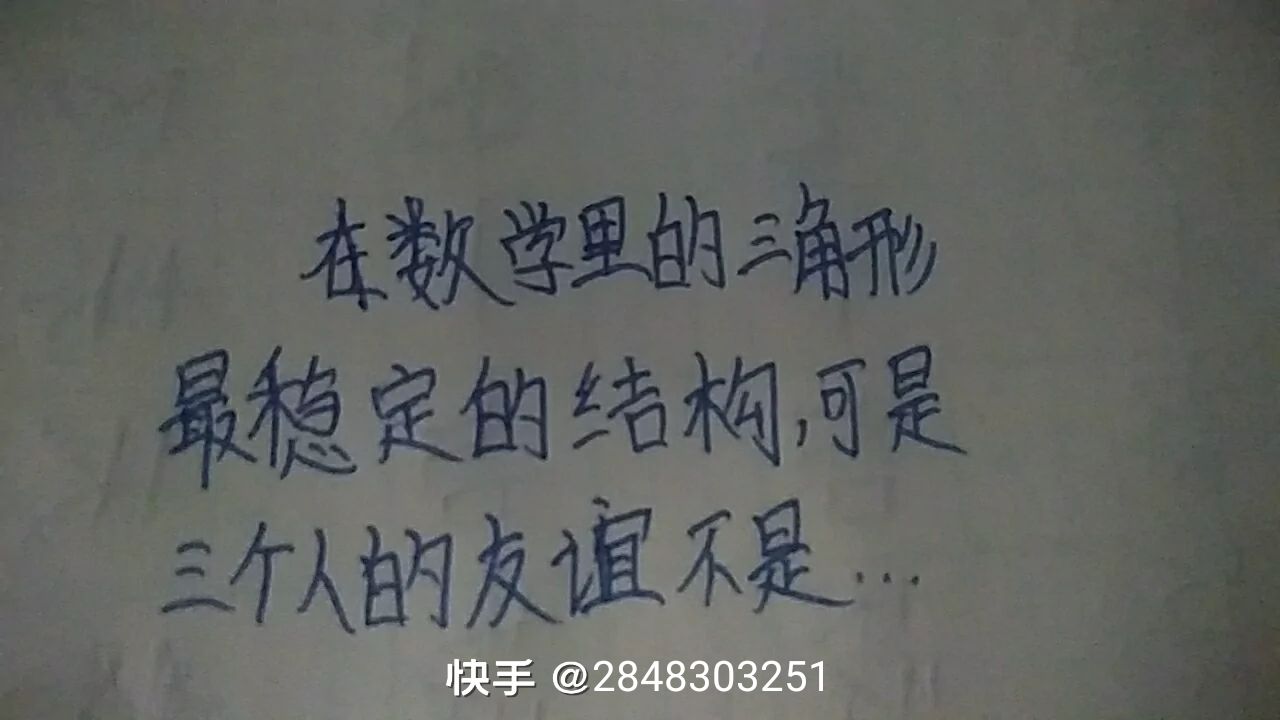 在数学里的三角形
最稳定的结构,可是
三个人的友谊不是...
快手 @2848303251